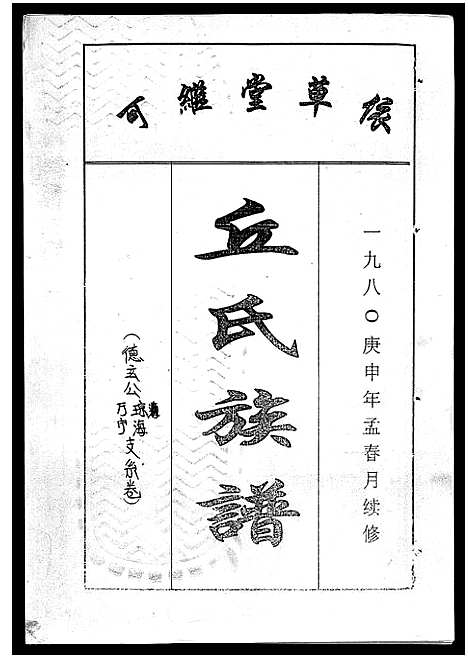 可繼堂草
一九八〇庚申年孟春月续修
丘氏族譜
(德玄公琼海
万宁支系卷)